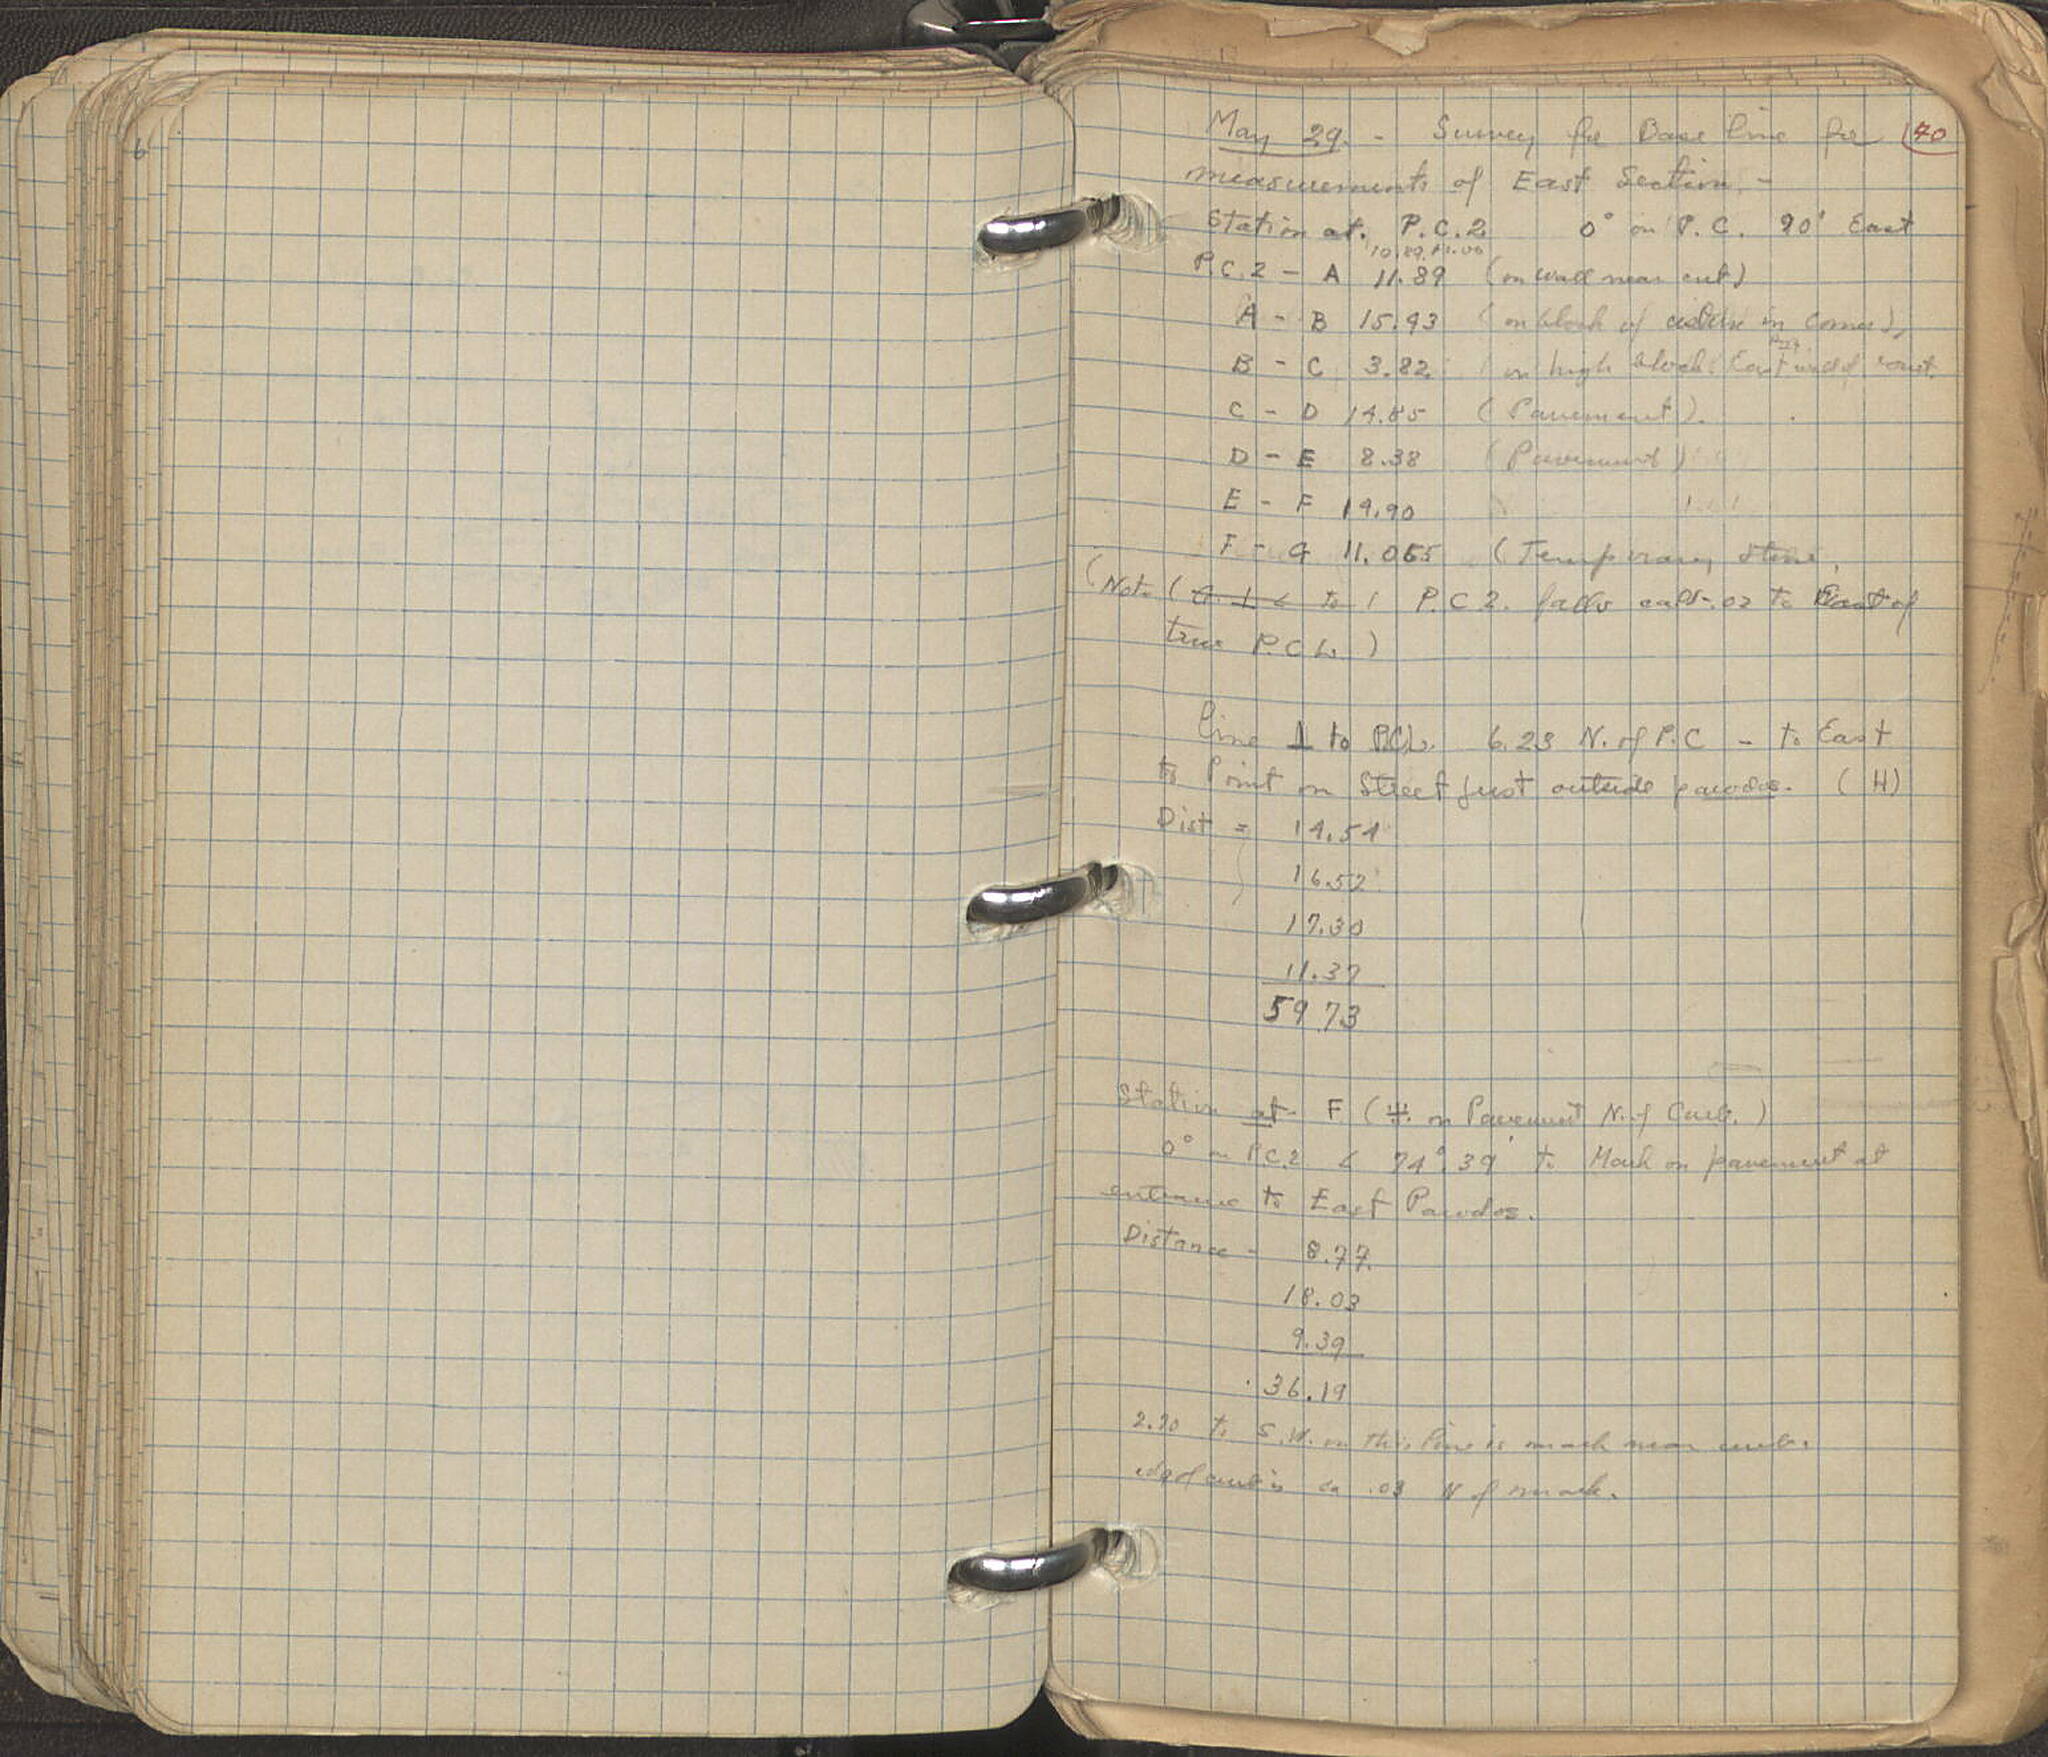 May 29. - Survey for Base line for 40
measurements of East Section. -
Station at. P.C.2 0° on P.C. 90° East
10.89 + 1.00
P.C.2 - A 11.89 (on wall near cut)
A - B 15.93 (on block of in corner),
B - C 3.82 (on high block East end of
C - D 14.85 (Pavement).
D - E 8.38 (Pavement)
E - F 14.90
F - G 11.065 (Temporary stone,
(Note ( to P.C 2. falls .02 to East of
true P.C.L.)
line ⊥ to P.C.L. 6.23 N. of P.C - to East
to Point on Street just outside parodos. (H)
Dist = 14.54
16.52
17.30
11.37
59.73
Station at F (on Pavement N. of Curb.)
0° on P.C.2 < 74° 39' to Mark on pavement at
entrance to East Parodos.
Distance - 8.77.
18.03
9.39
36.19
2.90 to S.W. on this line is mark near curb.
edge of curb is ca .03 N of mark.